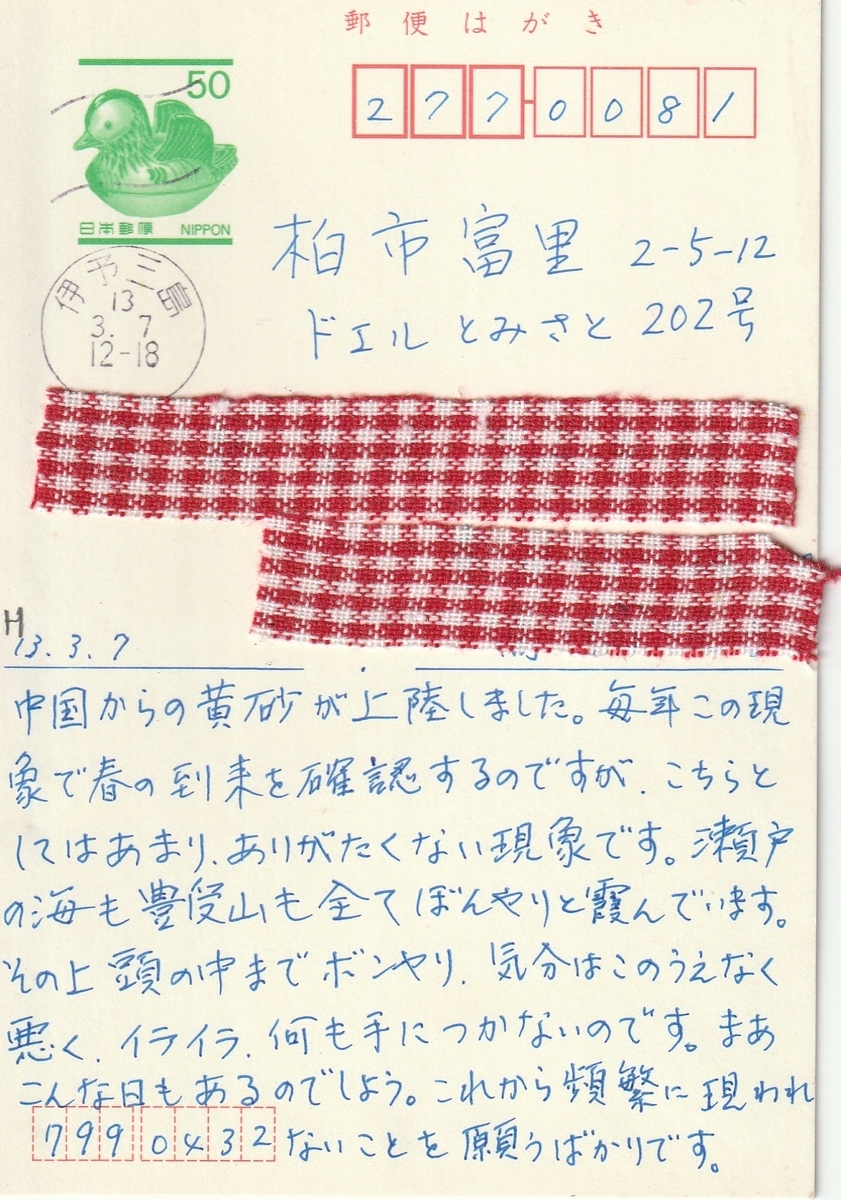 郵便はがき
50
日本郵便 NIPPON
277-0081
柏市富里 2-5-12
ドエルとみさと 202号
伊予三島
13
3. 7
12-18
H
13.3.7
中国からの黄砂が上陸しました。毎年この現
象で春の到来を確認するのですが、こちらと
してはあまり、ありがたくない現象です。瀬戸
の海も豊受山も全てぼんやりと霞んでいます。
その上頭の中までボンヤリ、気分はこのうえなく
悪く、イライラ、何も手につかないのです。まあ
こんな日もあるのでしょう。これから頻繁に現われ
ないことを願うばかりです。
7990432